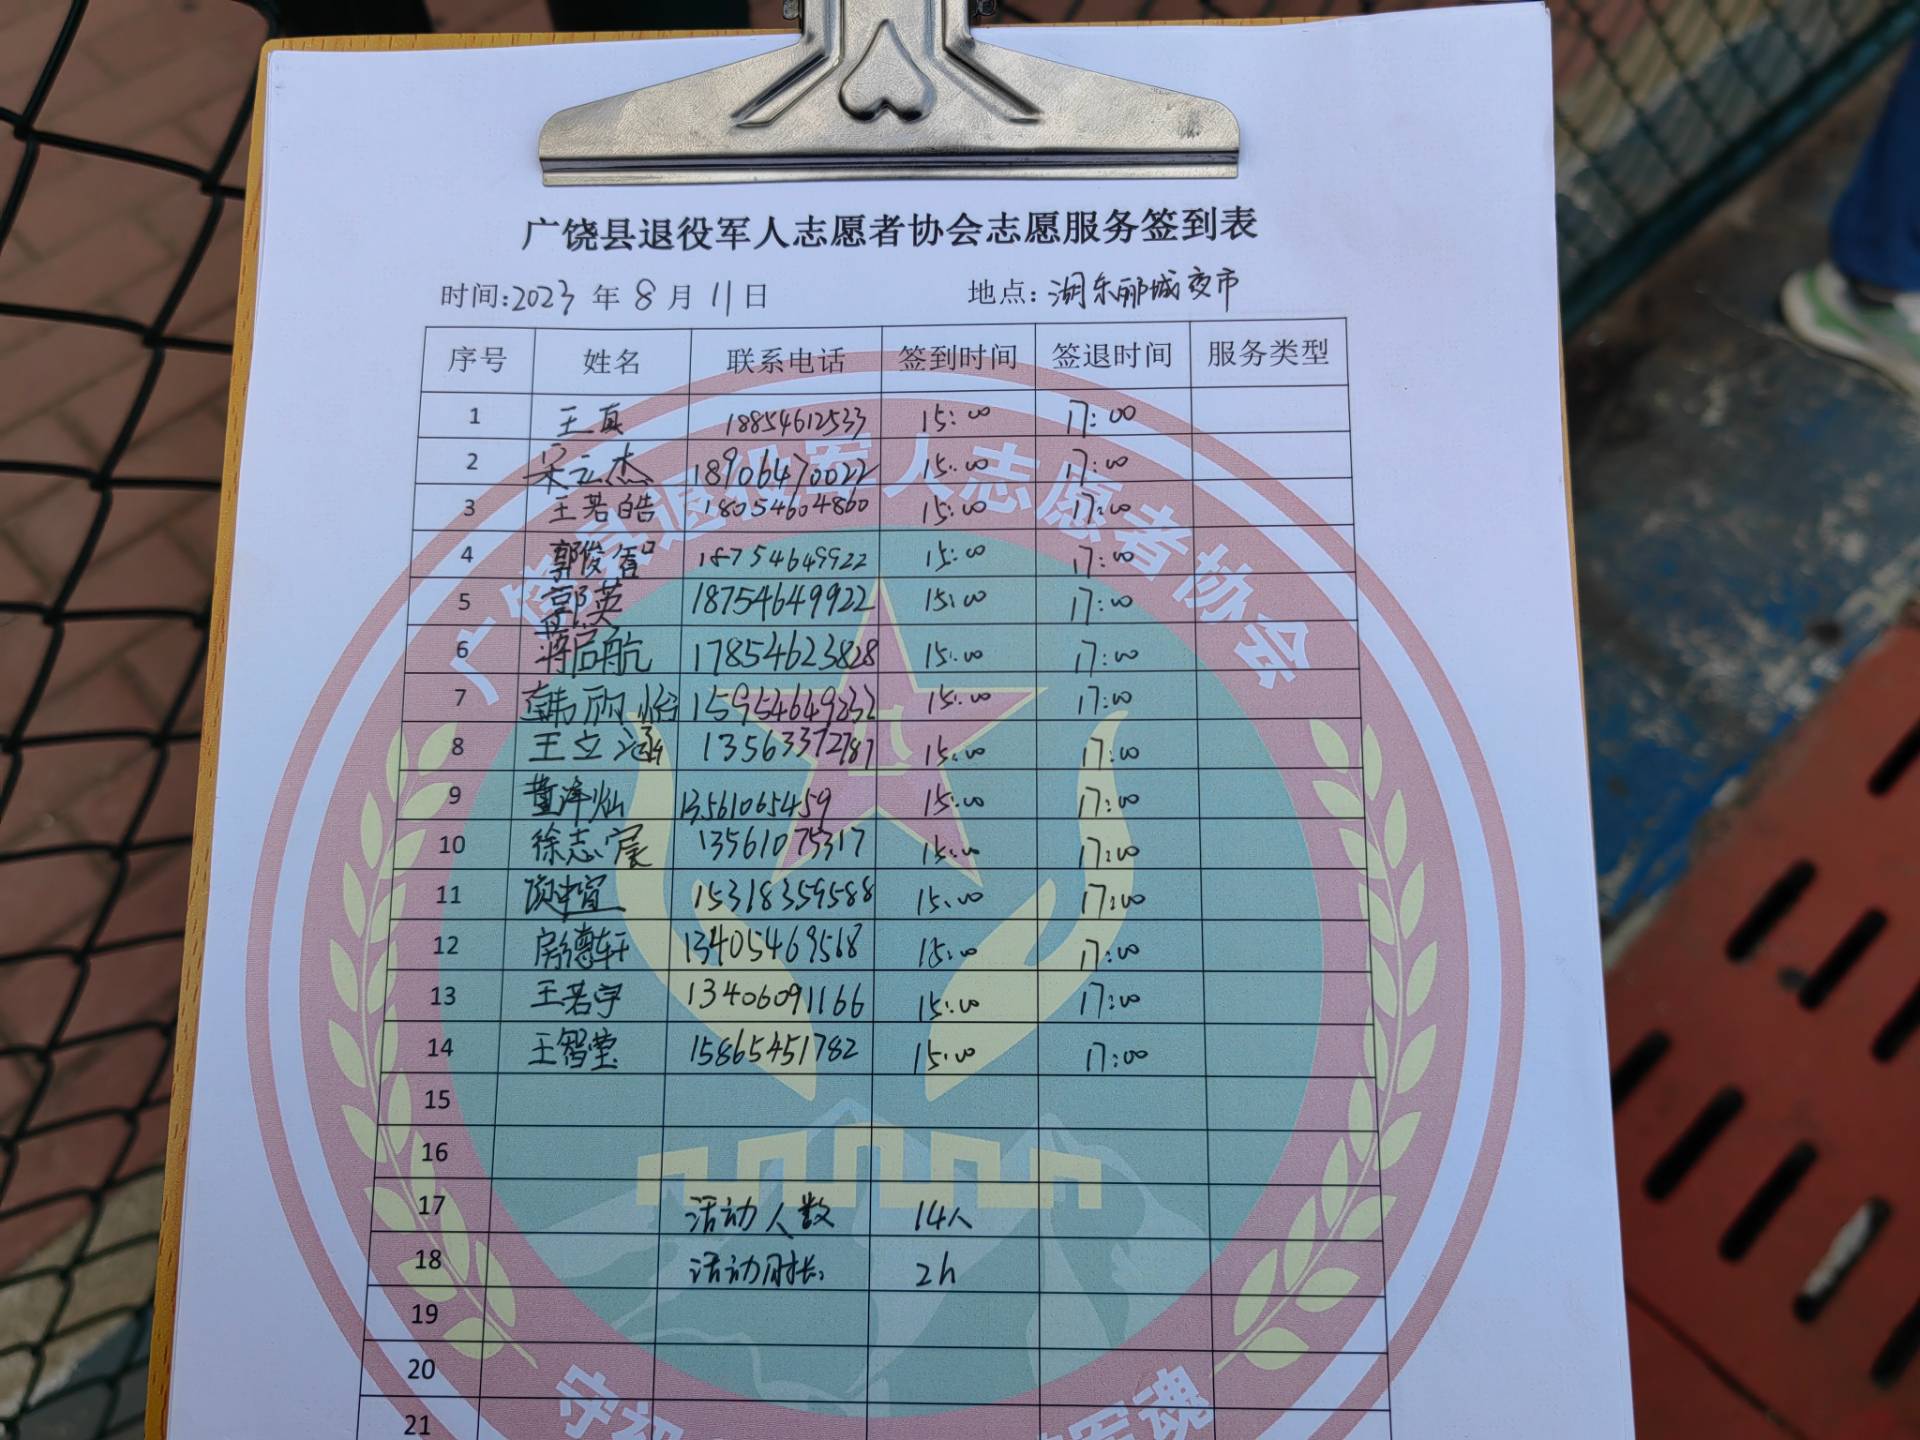 广饶县退役军人志愿者协会志愿服务签到表
时间:2023 年 8 月 11 日 地点: 湖东郦城夜市
序号 姓名 联系电话 签到时间 签退时间 服务类型
1 王真 18854612533 15:00 17:00
2 宋立杰 18906470022 15:00 17:00
3 王若皓 18054604860 15:00 17:00
4 郭俊智 18754649922 15:00 17:00
5 郭英 18754649922 15:00 17:00
6 蒋启航 17854623828 15:00 17:00
7 韩丽怡 15954649232 15:00 17:00
8 王立涵 13563372787 15:00 17:00
9 董泽灿 13561065459 15:00 17:00
10 徐志宸 13561075317 15:00 17:00
11 15318359588 15:00 17:00
12 房德轩 13405469568 15:00 17:00
13 王若宇 13406091166 15:00 17:00
14 王智莹 15865451782 15:00 17:00
15
16
17 活动人数 14人
18 活动时长: 2h
19
20
21
广饶县退役军人志愿者协会
军魂